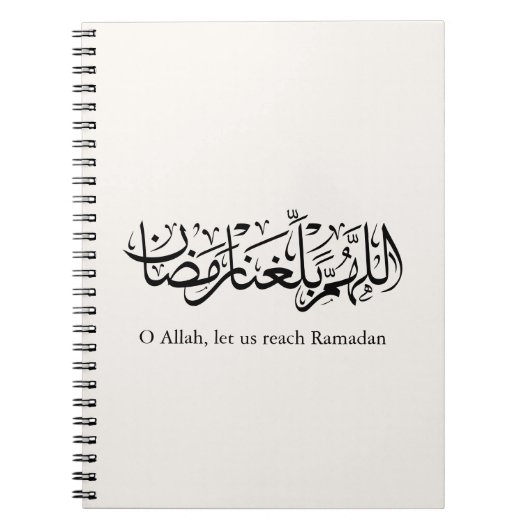 اللَّهُمَّ بَلِّغنَا رَمَضَان
O Allah, let us reach Ramadan